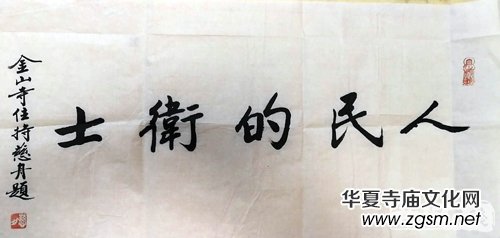 人民的衛士
金山寺住持慈舟題
华夏寺庙文化网
www.zgsm.net